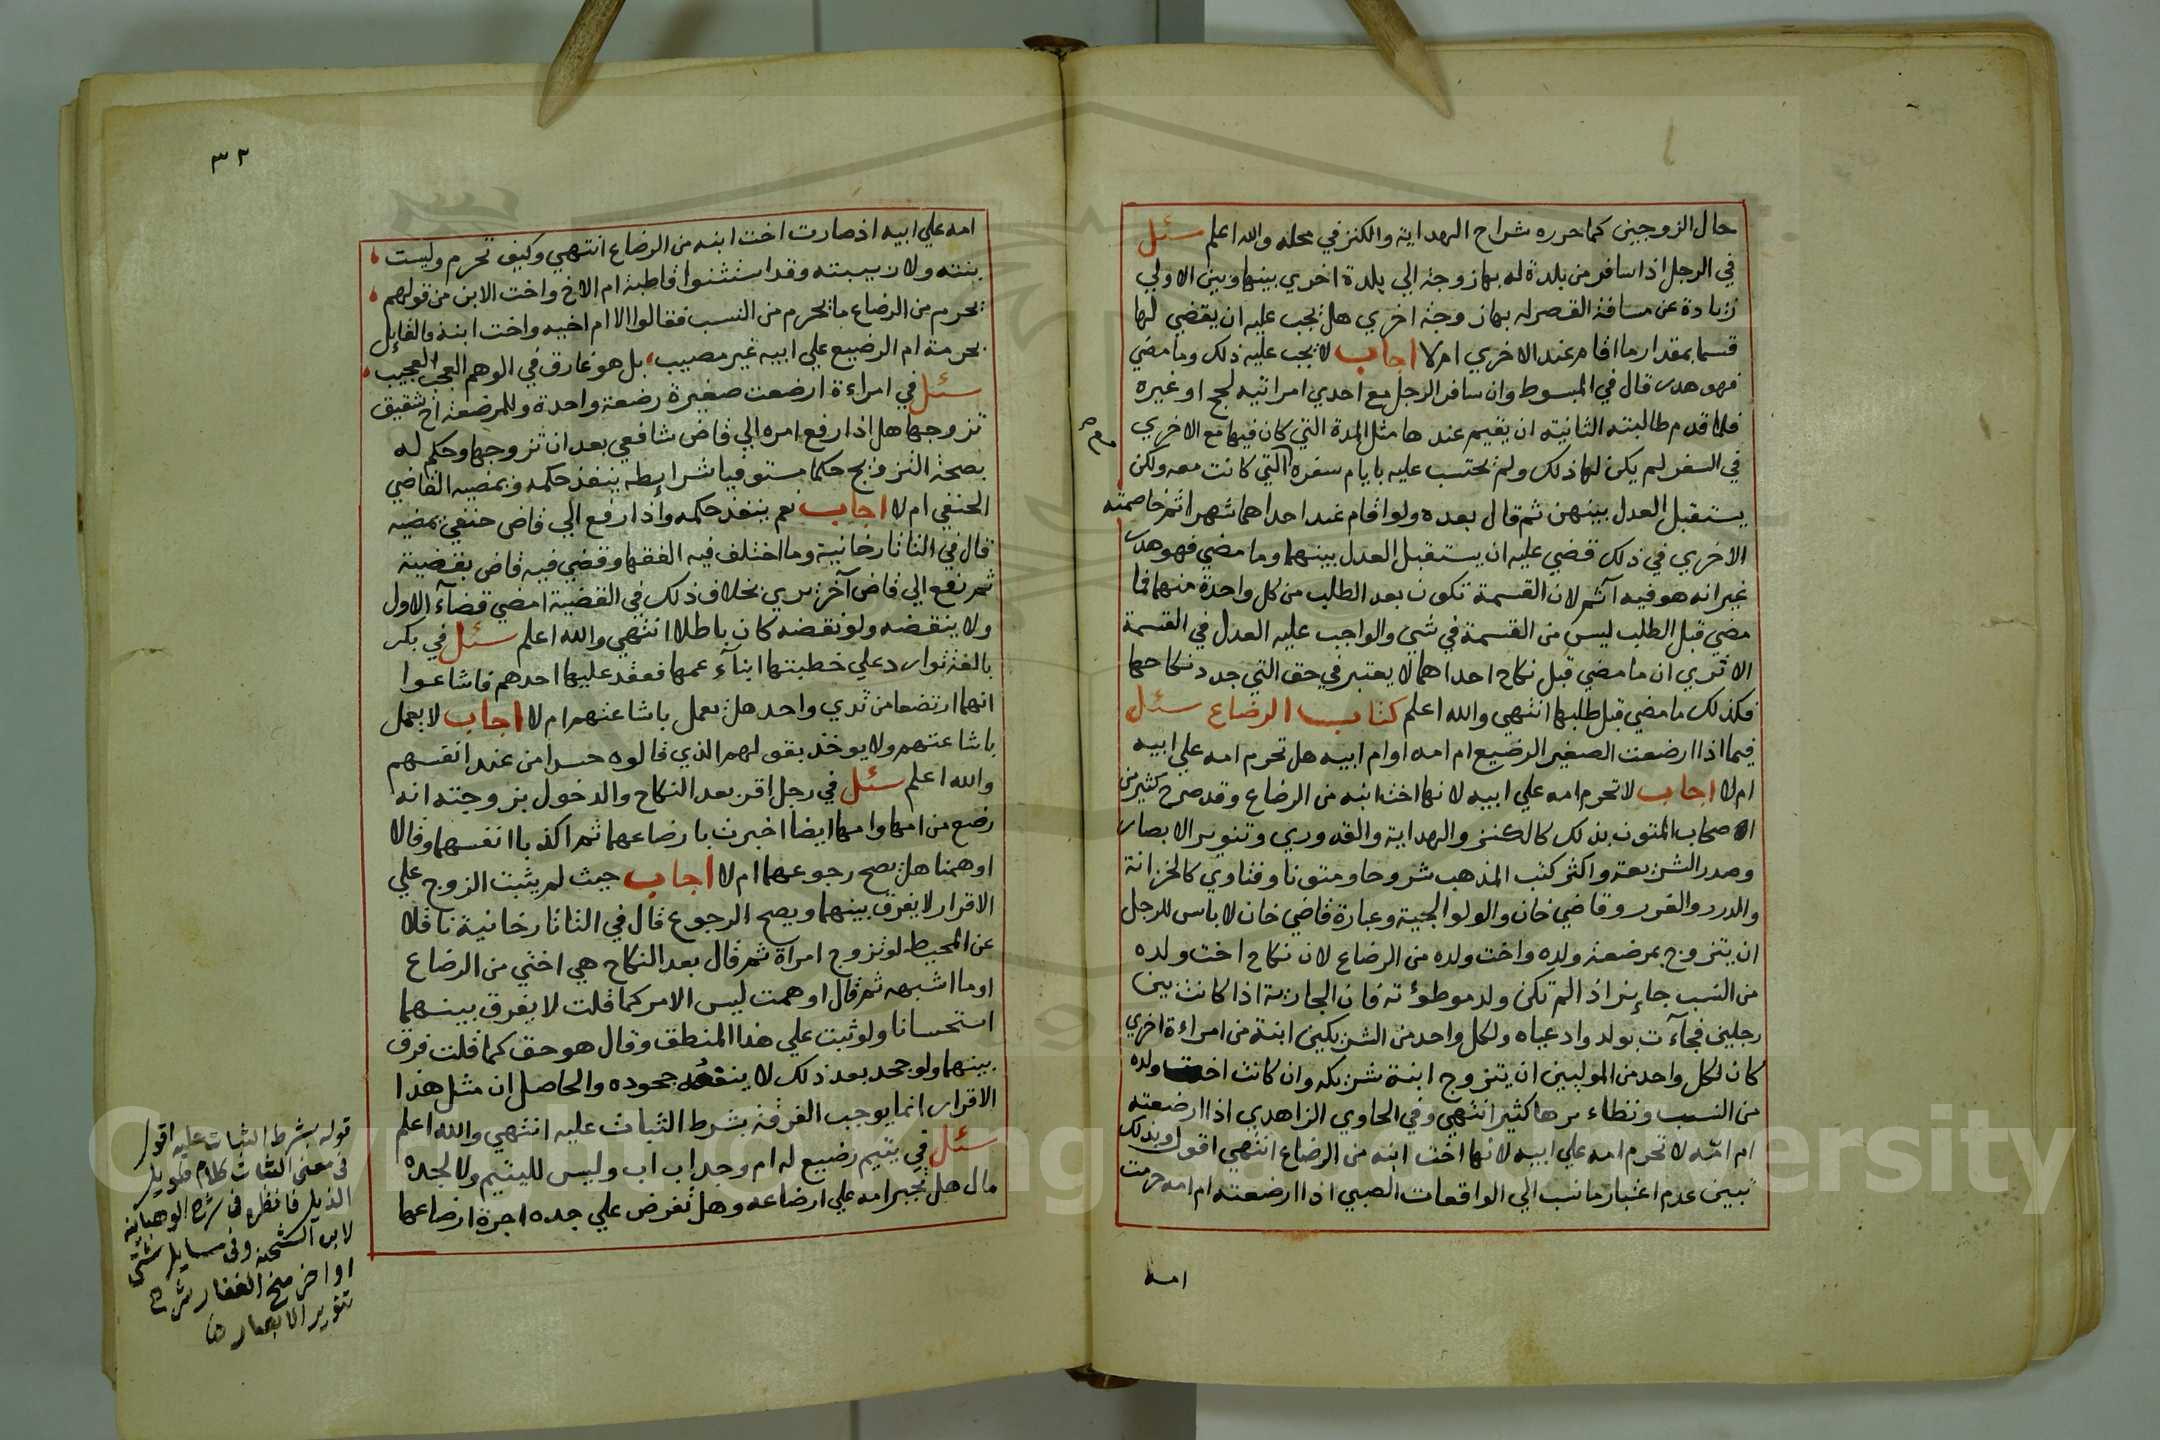 حال الزوجين كما حرره شراح الهداية والكنز في محله والله اعلم سئل
في الرجل اذا سافر من بلدة له بها زوجة الي بلدة اخري بينها وبين الاولي
زيادة عن مسافة القصر له بها زوجة اخري هل يجب عليه ان يقضي لها
قسما بمقدار ما اقام عند الاخري ام لا اجاب لا يجب عليه ذلك وما مضي
فهو هدر قال في المبسوط وان سافر الرجل مع احدي امراتيه لحج او غيره
فلما قدم طالبته الثانية ان يقيم عندها مثل المدة التي كان فيها مع الاخري
في السفر لم يكن لها ذلك ولم يحتسب عليه بايام سفره التي كانت معه ولكن
يستقبل العدل بينهن ثم قال بعده ولو اقام عند احداهما شهرا ثم خاصمته
الاخري في ذلك قضي عليه ان يستقبل العدل بينهما وما مضي فهو هدر
غير انه هو فيه آثم لان القسمة تكون بعد الطلب من كل واحدة منهما فما
مضي قبل الطلب ليس من القسمة في شي والواجب عليه العدل في القسمة
الا تري ان ما مضي قبل نكاح احداهما لا يعتبر في حق التي جدد نكاحها
فكذلك ما مضي قبل طلبها انتهي والله اعلم كتاب الرضاع سئل
فيما اذا ارضعت الصغير الرضيع ام امه او ام ابيه هل تحرم امه علي ابيه
ام لا اجاب لا تحرم امه علي ابيه لانها اخت ابنه من الرضاع وقد صرح كثير من
اصحاب المتون بذلك كالكنز والهداية والقدوري وتنوير الابصار
وصدر الشريعة واكثر كتب المذهب شروحا ومتونا وفتاوي كالخزانة
والدرر والغرر وقاضي خان والولوالجية وعبارة قاضي خان لا باس للرجل
ان يتزوج بمرضعة ولده واخت ولده من الرضاع لان نكاح اخت ولده
من النسب جايز اذا لم تكن ولد موطؤته فان الجارية اذا كانت بين
رجلين فجآءت بولد وادعياه ولكل واحد من الشريكين ابنة من امراءة اخري
كان لكل واحد من الموليين ان يتزوج ابنة شريكه وان كانت اخت ولده
من النسب ونظاءرها كثير انتهي وفي الحاوي الزاهدي اذا ارضعته
ام امه لا تحرم امه علي ابيه لانها اخت ابنه من الرضاع انتهي اقول وبذلك
تبين عدم اعتبار ما نسب الي الواقعات الصبي اذا ارضعته ام امه حرمت
امه
٣٢
امه علي ابيه اذ صارت اخت ابنه من الرضاع انتهي وكيف تحرم وليست
بنته ولا ربيبته وقد استثنوا قاطبة ام الاخ واخت الابن من قولهم
يحرم من الرضاع ما يحرم من النسب فقالوا الا ام اخيه واخت ابنه فالقايل
بحرمة ام الرضيع علي ابيه غير مصيب بل هو غارق في الوهم العجب العجيب
سئل في امراءة ارضعت صغيرة رضعة واحدة وللمرضعة اخ شقيق
تزوجها هل اذا رفع امره الي قاض شافعي بعد ان تزوجها وحكم له
بصحة التزويج حكما مستوفيا شرايطه ينفذ حكمه ويمضيه القاضي
الحنفي ام لا اجاب نعم ينفذ حكمه واذا رفع الي قاض حنفي يمضيه
قال في التاتارخانية وما اختلف فيه الفقها وقضي فيه قاض بقضية
ثم رفع الي قاض آخر يري بخلاف ذلك في القضية امضي قضآء الاول
ولا ينقضه ولو نقضه كان باطلا انتهي والله اعلم سئل في بكر
بالغة توارد علي خطبتها ابنآء عمها فعقد عليها احدهم فاشاعوا
انهما ارتضعا من ثدي واحد هل يعمل باشاعتهم ام لا اجاب لا يعمل
باشاعتهم ولا يوخذ بقولهم الذي قالوه حسدا من عند انفسهم
والله اعلم سئل في رجل اقر بعد النكاح والدخول بزوجته انه
رضع من امها وامها ايضا اخبرت بارضاعهما ثم اكذبا انفسهما وقالا
اوهمنا هل يصح رجوعهما ام لا اجاب حيث لم يثبت الزوج علي
الاقرار لا يفرق بينهما ويصح الرجوع قال في التاتارخانية ناقلا
عن المحيط لو تزوج امرآة ثم قال بعد النكاح هي اختي من الرضاع
او ما اشبهه ثم قال اوهمت ليس الامر كما قلت لا يفرق بينهما
استحسانا ولو ثبت علي هذا المنطق وقال هو حق كما قلت فرق
بينهما ولو جحد بعد ذلك لا ينفعه جحوده والحاصل ان مثل هذا
الاقرار انما يوجب الفرقة بشرط الثبات عليه انتهي والله اعلم
سئل في يتيم رضيع له ام وجد اب اب وليس لليتيم ولا لجده
مال هل تجبر امه علي ارضاعه وهل تفرض علي جده اجرة ارضاعها
قوله بشرط الثبات عليه اقول
في معنى الثبات كلام طويل
الذيل فانظره في شرح الوهبانية
لابن الشحنة وفي مسايل شتى
اواخر منح الغفار شرح
تنوير الابصار
Copyright © King Saud University